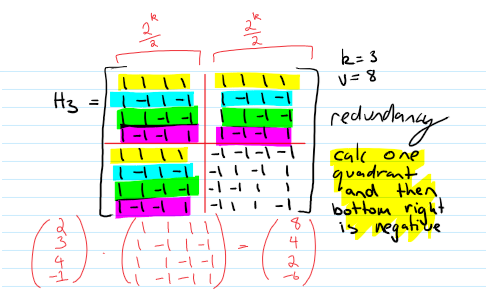 2^k/2 2^k/2
k = 3
v = 8
H₃ =
1 1 1 1 1 1 1 1
1 -1 1 -1 1 -1 1 -1
1 1 -1 -1 1 1 -1 -1
1 -1 -1 1 1 -1 -1 1
1 1 1 1 -1 -1 -1 -1
1 -1 1 -1 -1 1 -1 1
1 1 -1 -1 -1 -1 1 1
1 -1 -1 1 -1 1 1 -1
redundancy
calc one
quadrant
and then
bottom right
is negative
2 1 1 1 1 8
3 1 -1 1 -1 4
4 · 1 1 -1 -1 = 2
-1 1 -1 -1 1 -6